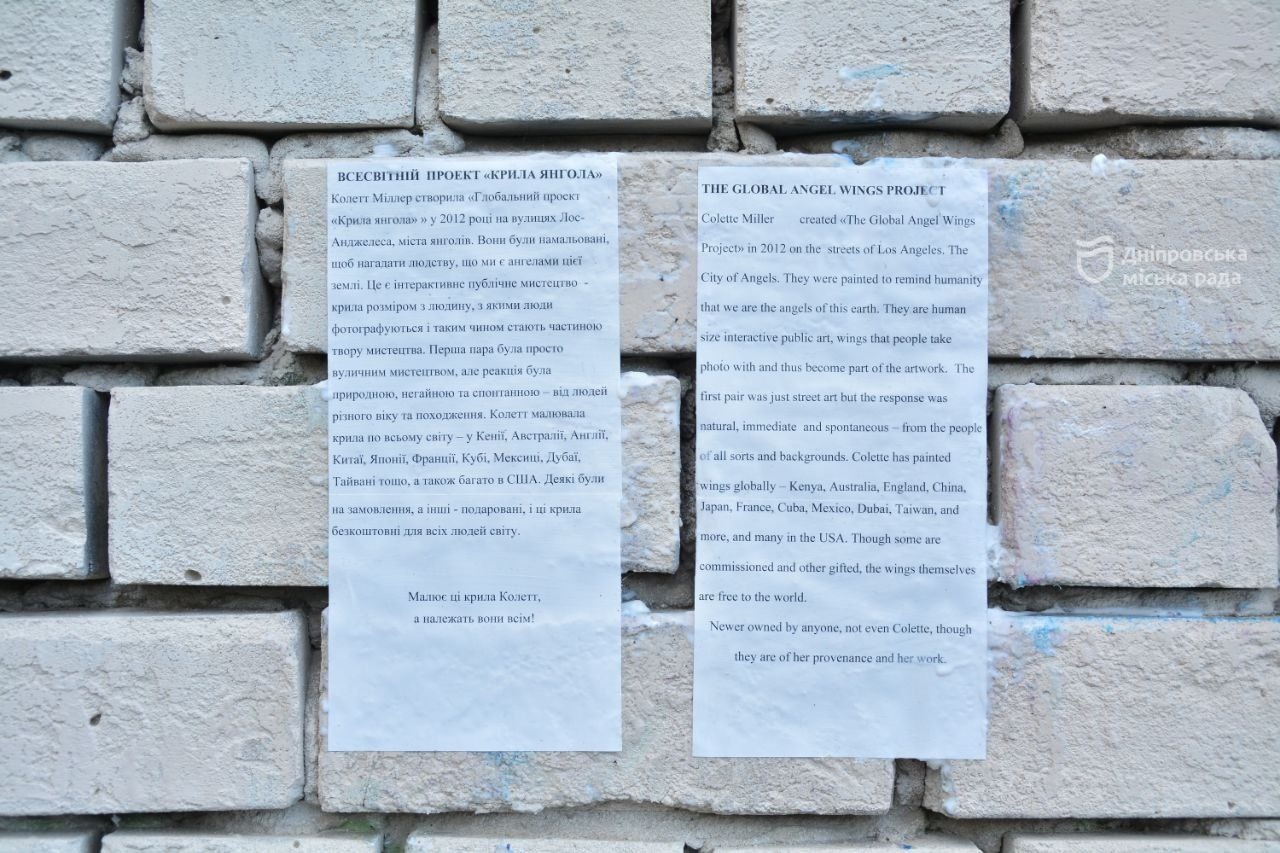 ВСЕСВІТНІЙ ПРОЕКТ «КРИЛА ЯНГОЛА»
Колетт Міллер створила «Глобальний проєкт
«Крила янгола» » у 2012 році на вулицях Лос-
Анджелеса, міста янголів. Вони були намальовані,
щоб нагадати людству, що ми є ангелами цієї
землі. Це є інтерактивне публічне мистецтво -
крила розміром з людину, з якими люди
фотографуються і таким чином стають частиною
твору мистецтва. Перша пара була просто
вуличним мистецтвом, але реакція була
природною, негайною та спонтанною – від людей
різного віку та походження. Колетт малювала
крила по всьому світу – у Кенії, Австралії, Англії,
Китаї, Японії, Франції, Кубі, Мексиці, Дубаї,
Тайвані тощо, а також багато в США. Деякі були
на замовлення, а інші - подаровані, і ці крила
безкоштовні для всіх людей світу.
Малює ці крила Колетт,
а належать вони всім!
THE GLOBAL ANGEL WINGS PROJECT
Colette Miller created «The Global Angel Wings
Project» in 2012 on the streets of Los Angeles. The
City of Angels. They were painted to remind humanity
that we are the angels of this earth. They are human
size interactive public art, wings that people take
photo with and thus become part of the artwork. The
first pair was just street art but the response was
natural, immediate and spontaneous – from the people
of all sorts and backgrounds. Colette has painted
wings globally – Kenya, Australia, England, China,
Japan, France, Cuba, Mexico, Dubai, Taiwan, and
more, and many in the USA. Though some are
commissioned and other gifted, the wings themselves
are free to the world.
Newer owned by anyone, not even Colette, though
they are of her provenance and her work.
Дніпровська
міська рада